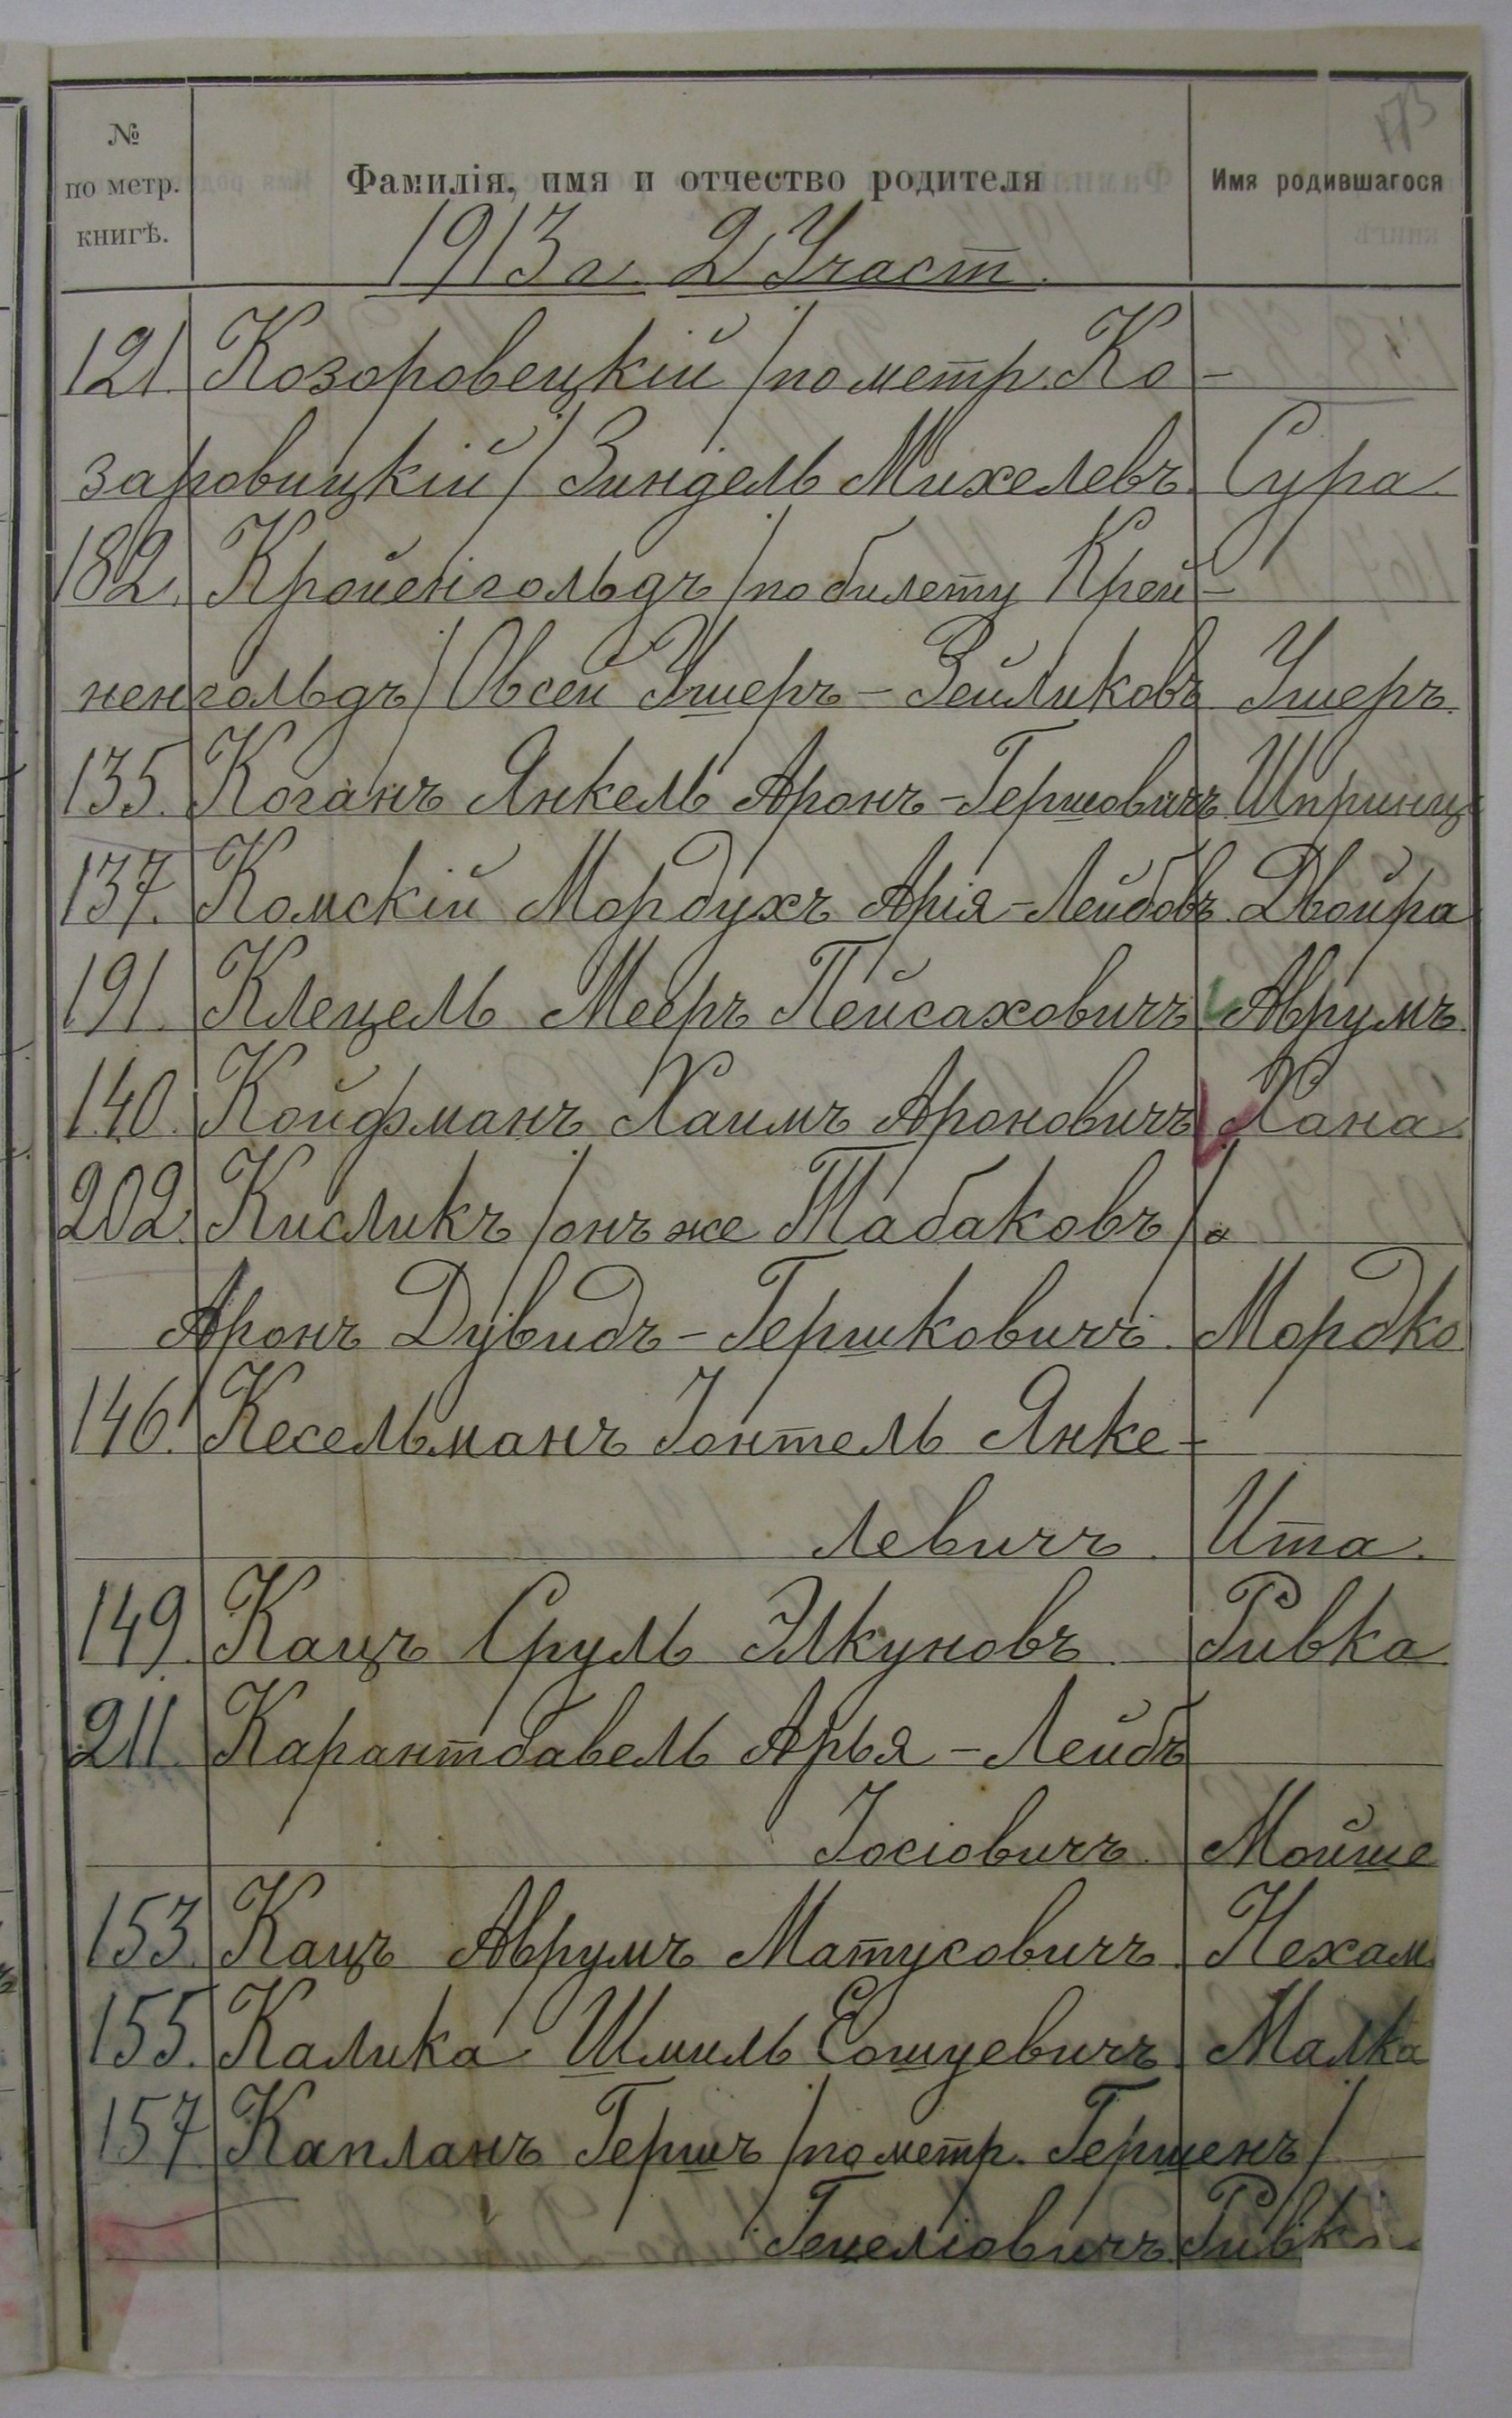 173
№ по метр. книгѣ.
Фамилія, имя и отчество родителя
Имя родившагося
1913 г. 2 Участ.
121. Козоровецкій /по метр. Ко-
заровицкій/ Зиндель Михелевъ. Сура.
182. Кройенгольдъ /по билету Крей-
ненгольдъ/ Овсей Ушеръ-Зейликовъ. Ушеръ.
135. Коганъ Янкель Аронъ-Гершовичъ. Шпринц
137. Комскій Мордухъ Арія-Лейбовъ. Двойра
191. Клецель Мееръ Пейсаховичъ. Аврумъ.
140. Койфманъ Хаимъ Ароновичъ Хана.
202. Кисликъ /онъ же Табаковъ/
Аронъ Дувидъ-Гершковичъ. Мордко.
146. Кесельманъ Іонтель Янке-
левичъ. Ита.
149. Кацъ Сруль Элкуновъ. Ривка.
211. Карантбавель Арья-Лейбъ
Іосіовичъ. Мойше
153. Кацъ Аврумъ Матусовичъ. Нехам
155. Калика Шмиль Еошуевичъ. Малка
157. Капланъ Гершъ /по метр. Гершенъ/
Гецеліовичъ. Ривка